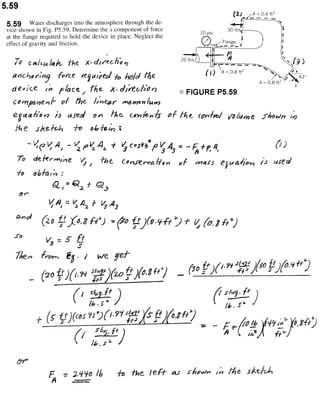 5.59
5.59 Water discharges into the atmosphere through the de-
vice shown in Fig. P5.59. Determine the x component of force
at the flange required to hold the device in place. Neglect the
effect of gravity and friction.
(2) A = 0.4 ft²
30 ft/s
10 psi
Flange
F_A
20 ft/s
(1) A = 0.8 ft²
(3)
45°
A = 0.8 ft²
FIGURE P5.59
To calculate the x-direction
anchoring force required to hold the
device in place, the x-direction
component of the linear momentum
equation is used on the contents of the control volume shown in
the sketch to obtain:
-V₁ρV₁A₁ - V₂ρV₂A₂ + V₃cos45°ρV₃A₃ = -F_A + P₁A₁ (1)
To determine V₃, the conservation of mass equation is used
to obtain:
Q₁ = Q₂ + Q₃
or
V₁A₁ = V₂A₂ + V₃A₃
and (20 ft/s)(0.8 ft²) = (30 ft/s)(0.4 ft²) + V₃(0.8 ft²)
so
V₃ = 5 ft/s
Then from Eq. 1 we get
- (20 ft/s)(1.94 slugs/ft³)(20 ft/s)(0.8 ft²) - (30 ft/s)(1.94 slugs/ft³)(30 ft/s)(0.4 ft²)
(1 slug.ft/lb.s²) (1 slug.ft/lb.s²)
+ (5 ft/s)(cos 45°)(1.94 slugs/ft³)(5 ft/s)(0.8 ft²)
(1 slug.ft/lb.s²) = - F_A + (10 lb/in²)(144 in²/ft²)(0.8 ft²)
or
F_A = 2440 lb to the left as shown in the sketch